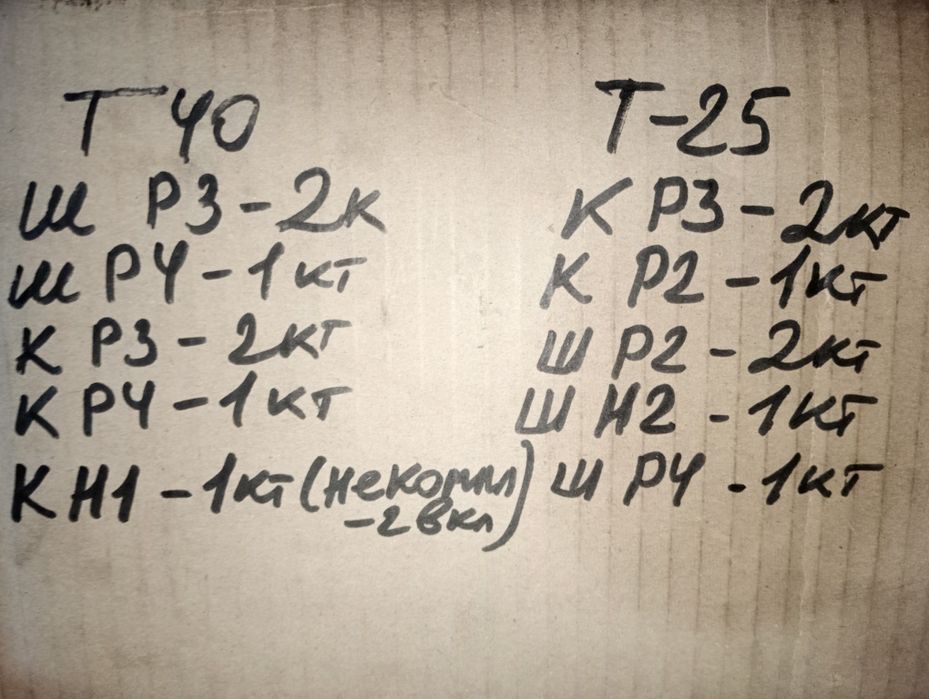 Т 40
Ш Р3 - 2к
Ш Р4 - 1кт
К Р3 - 2кт
К Р4 - 1кт
К Н1 - 1кт (некомпл
- 2 вкл)
Т-25
К Р3 - 2кт
К Р2 - 1кт
Ш Р2 - 2кт
Ш Н2 - 1кт
Ш Р4 - 1кт